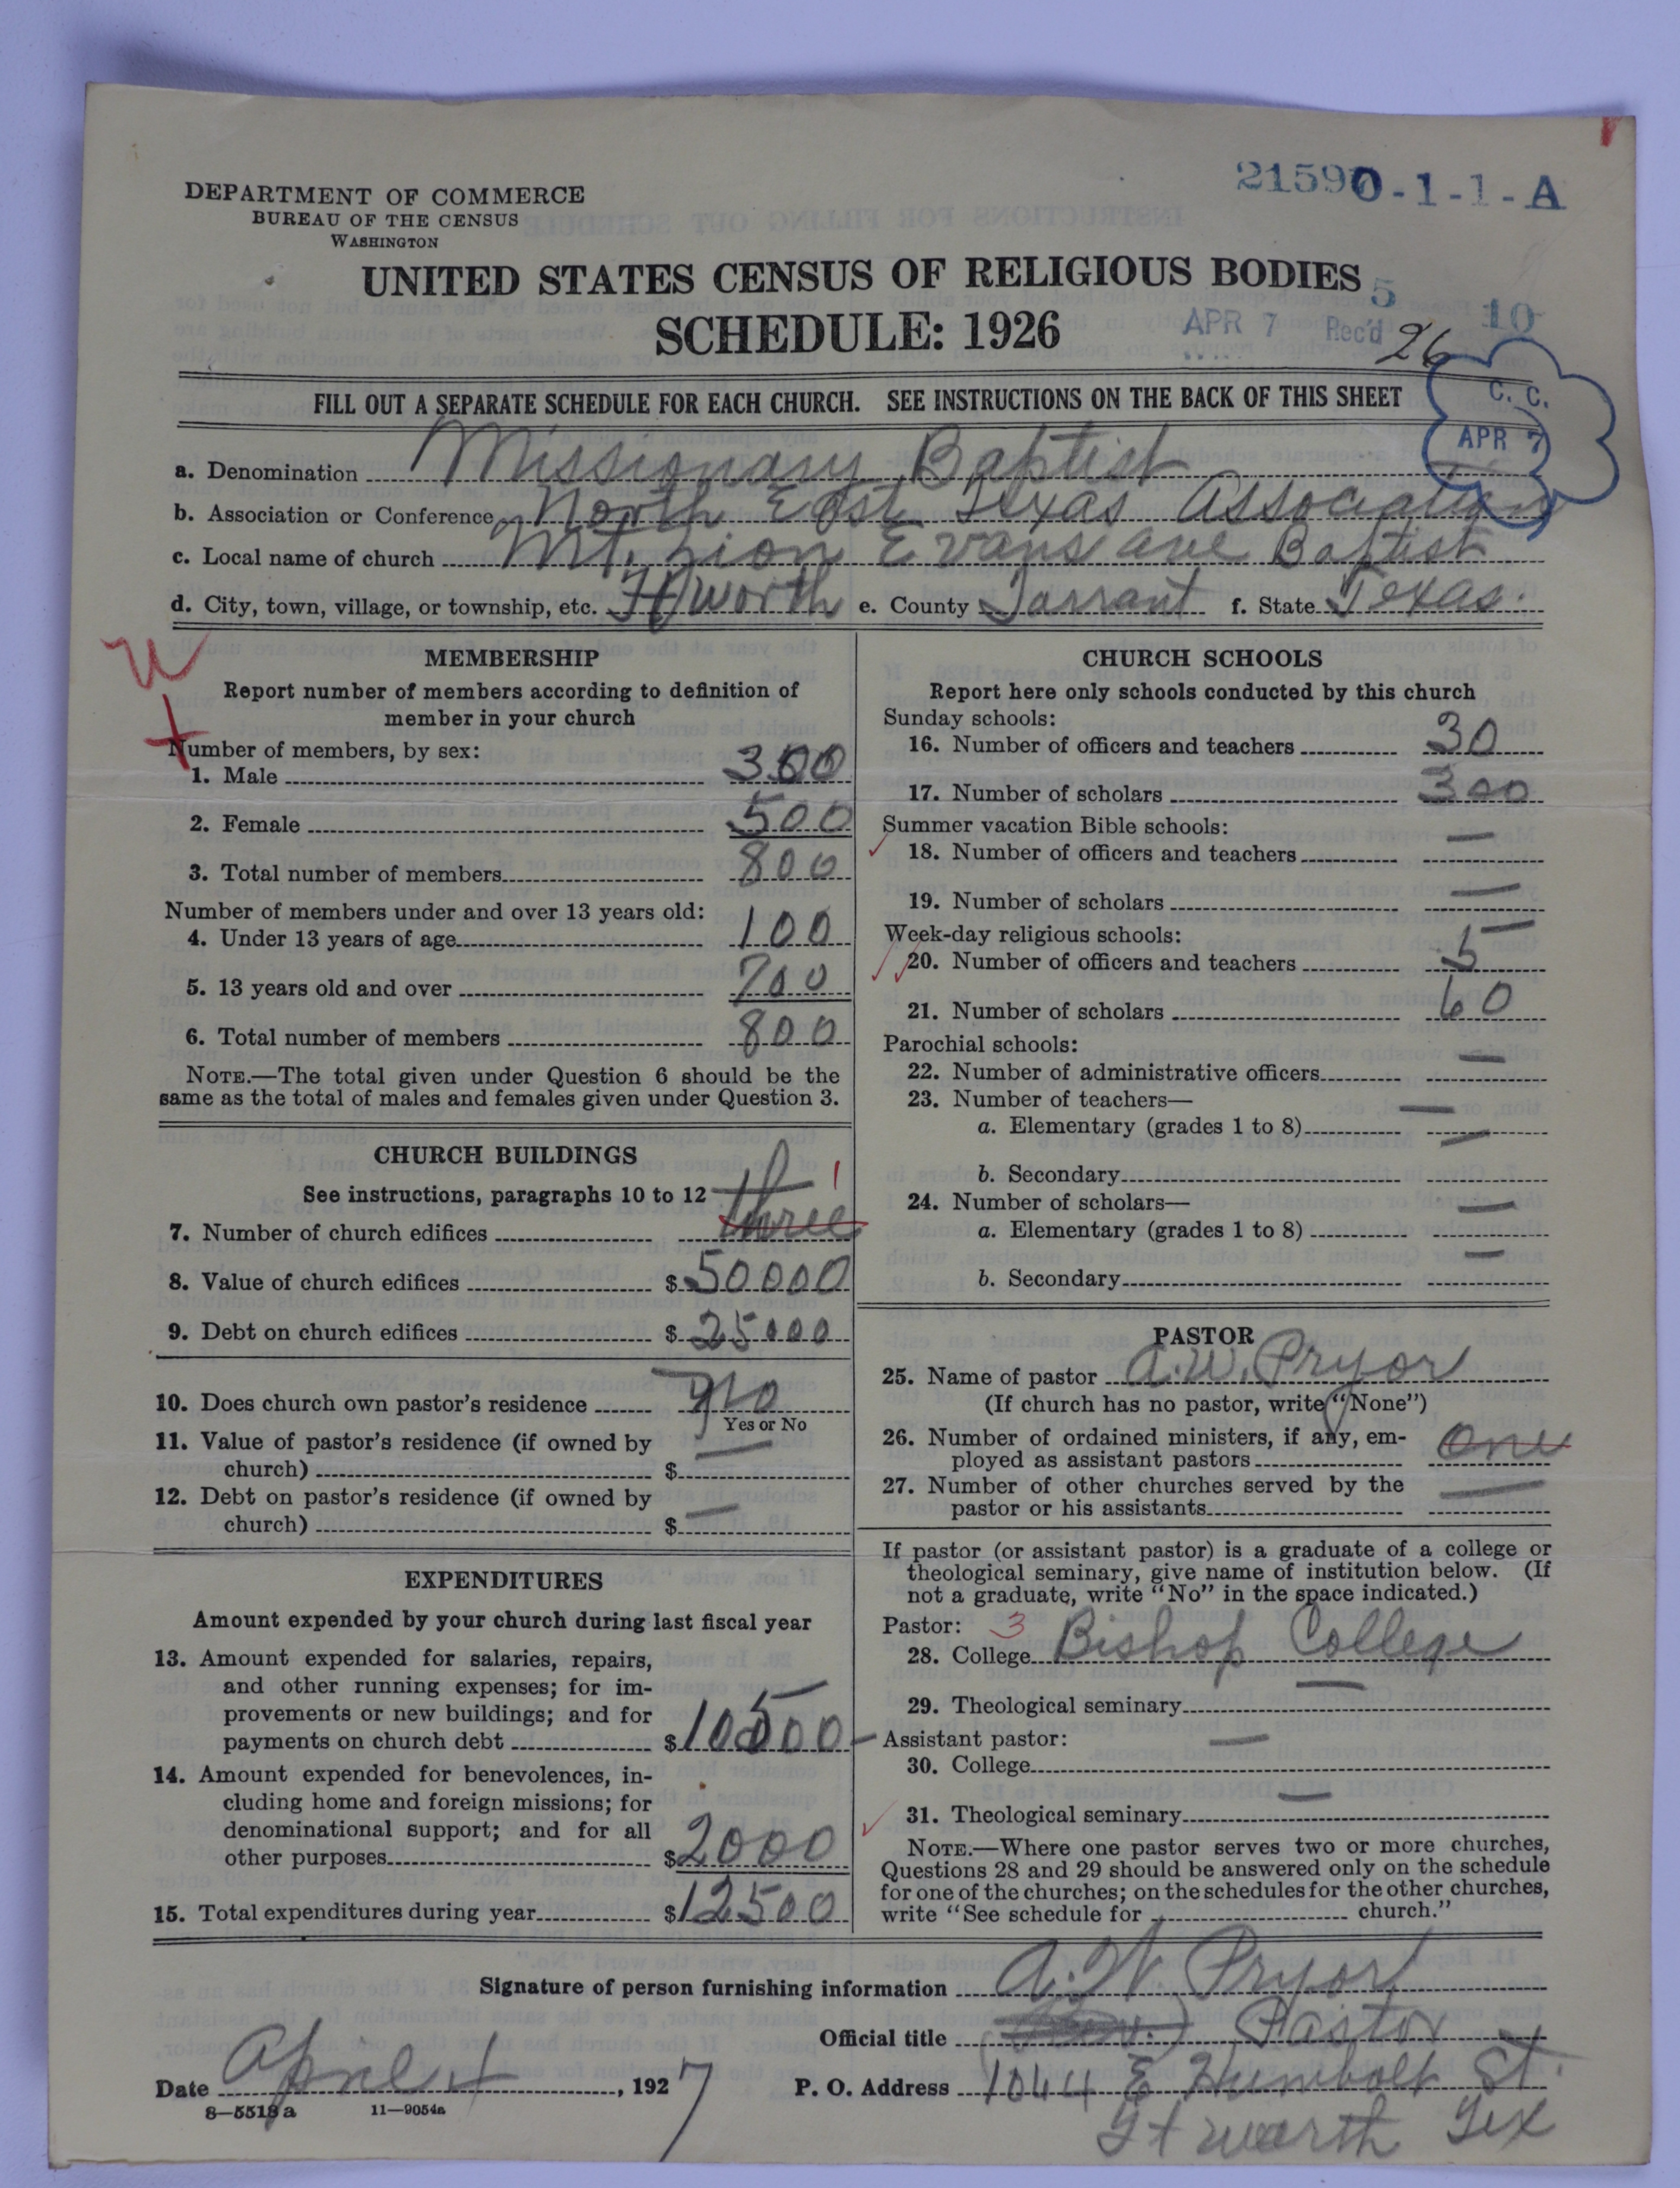 21590-1-1-A
DEPARTMENT OF COMMERCE
BUREAU OF THE CENSUS
WASHINGTON
UNITED STATES CENSUS OF RELIGIOUS BODIES
SCHEDULE: 1926
5 10
APR 7 Rec'd 26
C. C.
APR 7
FILL OUT A SEPARATE SCHEDULE FOR EACH CHURCH. SEE INSTRUCTIONS ON THE BACK OF THIS SHEET
a. Denomination Missionary Baptist
b. Association or Conference North East Texas Association
c. Local name of church Mt. Zion Evans ave Baptist
d. City, town, village, or township, etc. Ft worth e. County Tarrant f. State Texas.
MEMBERSHIP
Report number of members according to definition of
member in your church
Number of members, by sex:
1. Male 300
2. Female 500
3. Total number of members 800
Number of members under and over 13 years old:
4. Under 13 years of age 100
5. 13 years old and over 700
6. Total number of members 800
NOTE.—The total given under Question 6 should be the
same as the total of males and females given under Question 3.
CHURCH BUILDINGS
See instructions, paragraphs 10 to 12 1
7. Number of church edifices three
8. Value of church edifices $50000
9. Debt on church edifices $25000
10. Does church own pastor's residence no
Yes or No
11. Value of pastor's residence (if owned by
church) $ —
12. Debt on pastor's residence (if owned by
church) $ —
EXPENDITURES
Amount expended by your church during last fiscal year
13. Amount expended for salaries, repairs,
and other running expenses; for im-
provements or new buildings; and for
payments on church debt $10500
14. Amount expended for benevolences, in-
cluding home and foreign missions; for
denominational support; and for all
other purposes $2000
15. Total expenditures during year $12500
CHURCH SCHOOLS
Report here only schools conducted by this church
Sunday schools:
16. Number of officers and teachers 30
17. Number of scholars 300
Summer vacation Bible schools:
18. Number of officers and teachers —
19. Number of scholars —
Week-day religious schools:
20. Number of officers and teachers 5
21. Number of scholars 60
Parochial schools:
22. Number of administrative officers —
23. Number of teachers— —
a. Elementary (grades 1 to 8) —
b. Secondary
24. Number of scholars—
a. Elementary (grades 1 to 8) —
b. Secondary —
PASTOR
25. Name of pastor A. W. Pryor
(If church has no pastor, write "None")
26. Number of ordained ministers, if any, em-
ployed as assistant pastors one
27. Number of other churches served by the
pastor or his assistants —
If pastor (or assistant pastor) is a graduate of a college or
theological seminary, give name of institution below. (If
not a graduate, write "No" in the space indicated.)
Pastor: 3
28. College Bishop College
29. Theological seminary —
Assistant pastor:
30. College —
31. Theological seminary —
NOTE.—Where one pastor serves two or more churches,
Questions 28 and 29 should be answered only on the schedule
for one of the churches; on the schedules for the other churches,
write "See schedule for church."
Signature of person furnishing information A. W. Pryor
Official title Pastor
Date April 4, 1927 P. O. Address 1044 E Humbolt St.
Ft worth Tex
8—5518 a 11—9054a